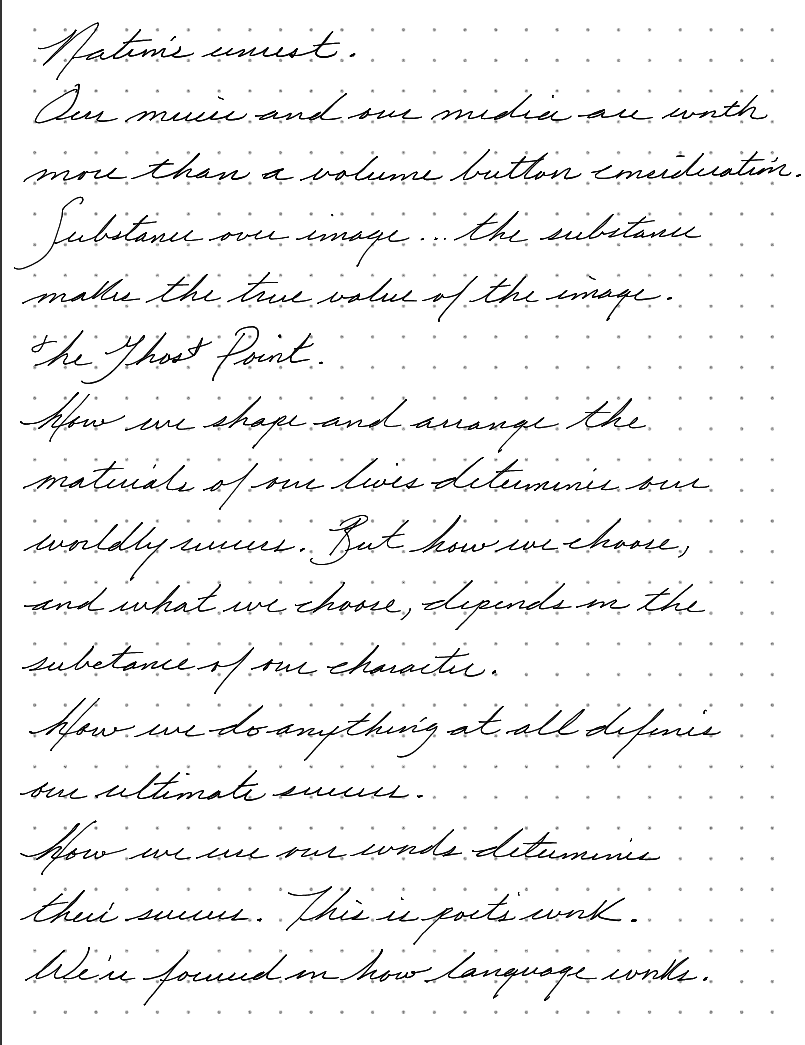 Nation's unrest.
Our music and our media are worth
more than a volume button consideration.
Substance over image... the substance
makes the true value of the image.
The Ghost Point.
How we shape and arrange the
materials of our lives determines our
worldly success. But how we choose,
and what we choose, depends on the
substance of our character.
How we do anything at all defines
our ultimate success.
How we use our words determines
their success. This is poet's work.
We're focused on how language works.